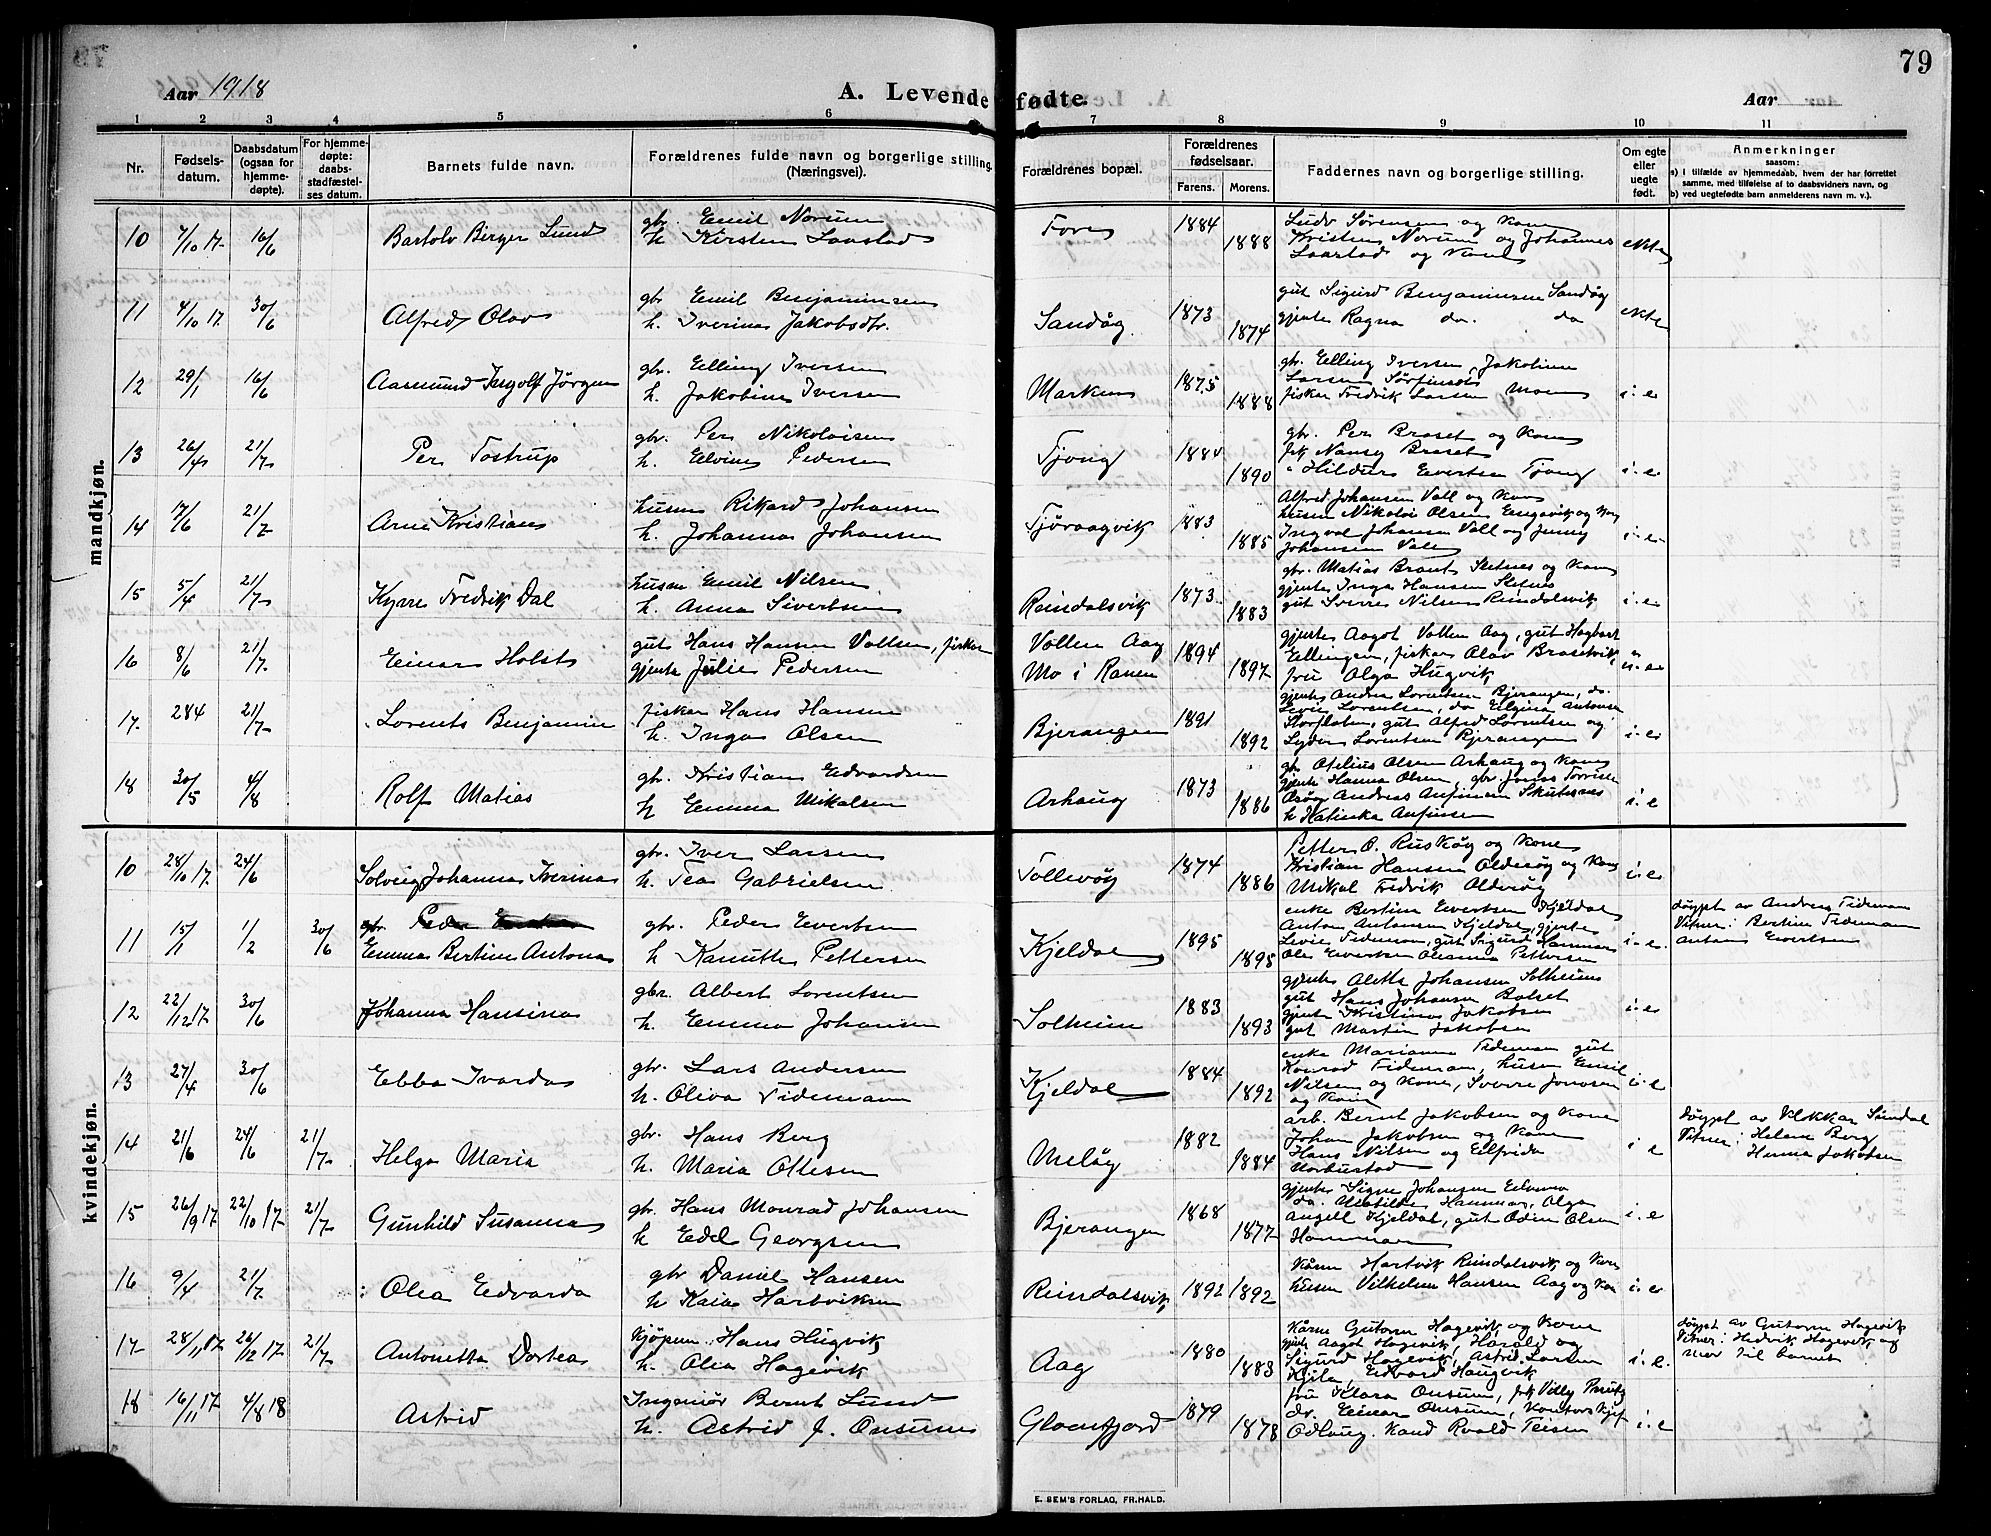 79
Aar 1918
A. Levende fødte.
Aar
1 2 3 4 5 6 7 8 9 10 11
Nr.
Fødsels-
datum.
Daabsdatum
(ogsaa for
hjemme-
døpte).
For hjemme-
døpte:
daabs-
stadfæstel-
ses datum.
Barnets fulde navn.
Forældrenes fulde navn og borgerlige stilling.
(Næringsvei).
Forældrenes bopæl.
Forældrenes
fødselsaar.
Farens. Morens.
Faddernes navn og borgerlige stilling.
Om egte
eller
uegte
født.
Anmerkninger
saasom:
a) i tilfælde av hjemmedaab, hvem der har forrettet
samme, med tilføielse af to daabsvidners navn, og
b) ved uegtefødte barn anmelderens navn m. v.)
mandkjøn.
10 7/10 17. 16/6 Bartolv Berger Lund
gbr. Emil Norum
h. Kirsten
Fore 1884 1888
Ludv Sørensen og kone
Kristen Norum og Johannes
og kone
ekte
11 4/10 17. 30/6 Alfred Olav
gbr. Emil Benjaminsen
h. Iverine Jakobsdtr.
Sandøg 1873 1874
gut Sigurd Benjaminsen Sandøg
gjente Ragna do. do
ekte
12 29/1 16/6 Aasmund Ingolf Jørgen
gbr. Elling Iversen
h. Jakobine Iversen
Marken 1875 1888
gbr. Elling Iversen, Jakobine
Larsen
fisker Fredrik Larsen Moen
i. e
13 26/4 21/7 Per Tostrup
gbr. Per Nikolaisen
h. Elvine Pedersen
Tjong 1884 1890
gbr. Per Braset og kone
frk Nansy Braset
" Hildur Evertsen Tjong
i. e
14 17/6 21/7 Arne Kristian
husm Rikard Johansen
h. Johanna Johansen
1883 1885
Alfred Johansen Vall og kone
husm Nikolai Olsen Engavik og kone
Ingval Johansen Vall og Jenny
Johansen Vall
i. e
15 5/4 21/7 Kyrre Fredrik Dal
husm Emil Nilsen
h. Anna Sivertsen
Reindalsvik 1873 1883
gbr. Matias Brant Setnes og kone
gjente Inga Hansen Setnes
gut Sverre Nilsen Reindalsvik
i. e
16 8/6 21/7 Einar Holst
gut Hans Hansen Vollen, fisker
gjente Julie Pedersen
Vollen Aag
Mo i Ranen
1894 1897
gjente Aagot Vollen Aag, gut Hagbart
Ellingsen, fisker Olav Brasetvik,
fru Olga Hugvik
u. e
17. 284 21/7 Lorents Benjamin
fisker Hans Hansen
h. Inga Olsen
Bjerangen 1891 1892
gjente Andrea Lorentsen Bjerangen, do.
Levie Lorentsen, do Elgina Antonsen
Storflaten, gut Alfred Lorentsen og
Lyder Lorentsen Bjerangen
i. e
18 30/5 4/8 Rolf Matias
gbr. Kristian Edvardsen
h Emma Mikalsen
Arhaug 1873 1886
gbr Otelius Olsen Arhaug og kone
gjente Hanna Olsen, gbr. Jonas Torrisen
Andreas Anfinsen
h Anfinsen
i. e
kvindekjøn.
10 28/10 17. 24/6 Solveig Johanna Iverina
gbr. Iver Larsen
h. Tea Gabrielsen
Tollevøg 1874 1886
Petter O. Ruskøg og kone
Kristian Hansen Oldesøg og kone
Mikal Fredrik Oldesøg
i. e
11 15/1 1/2 30/6
gbr. Peder
Emma Bertine Antona
gbr. Peder Evertsen
h Kanutte Pettersen
Kjeldal 1895 1895
enke Bertine Evertsen Kjeldal
Anton Antonsen Kjeldal, gjente
Levie Tidemann, gut Sigurd Hammar
Ole Evertsen Oleanna Pettersen
i. e.
Døypt av Andreas Tidemann
Vitner: Bertine Tidemann
Antons Evertsen
12 22/12 17. 30/6 Johanna Hansina
gbr. Albert Lorentsen
h. Emma Johansen
Solheim 1883 1893
gjente Alette Johansen Solheim
gut Hans Johansen Bolset
gjente Kristine Jakobsen
gut Martin Jakobsen
i. e
13 27/4 30/6 Ebba Ivarda
gbr. Lars Andersen
h. Oliva Tidemann
Kjeldal 1884 1892
enke Marianne Tidemann gut
Konrad Tidemann, husm Emil
Nilsen og kone, Sverre Jonsen
og kone
i. e
14 21/6 24/6 21/7 Helga Maria
gbr. Hans Berg
h. Maria Ottesen
Meløy 1882 1884
arb. Bernt Jakobsen og kone
Johan Jakobsen og kone
Hans Nilsen og Elfrida
i e
Døypt av Vekkar Sundal
Vitner: Helena Berg
Henna Jakobsen
15 26/9 17 22/10 17 21/7 Gunhild Susanna
gbr. Hans Monrad Johansen
h Edel Georgsen
Bjerangen 1868 1877
gjente Signe Johansen
do. Matilde Hammar, Olga
Angell Kjeldal, gut Odin Olsen
Hammar
i. e
16 9/4 21/7 Olea Edvarda
gbr Daniel Hansen
h Kaia Hartviksen
Reindalsvik 1892 1892
Kårm Hartvik Reindalsvik og kone
husm Vilhelm Hansen Aag og kone
i. e
17 28/11 17 26/12 17 21/7 Antonetta Dortea
kjøpm. Hans Hugvik
h. Olea Hagevik
Aag 1880 1883
Kårm Gutorm Hagevik og kone
gjente Aagot Hagevik, Harald og
Sigurd Hagevik, Astrid Larsen
Kjila, Edvard Haugvik
i. e.
Døypt av Gutorm Hagevik
Vitner: Hedvik Hagevik og
mor til barnet
18 16/11 17 4/8 18 Astrid
Ingeniør Bernt Lund
h. Astrid J. Onsum
Glomfjord 1879 1878
fru Klara Onsum, frk Villy
dr. Einar Onsum, Kontorskjef
Odlaug. kand Roald Teisen
i. e
E. SEM'S FORLAG, FR.HALD.